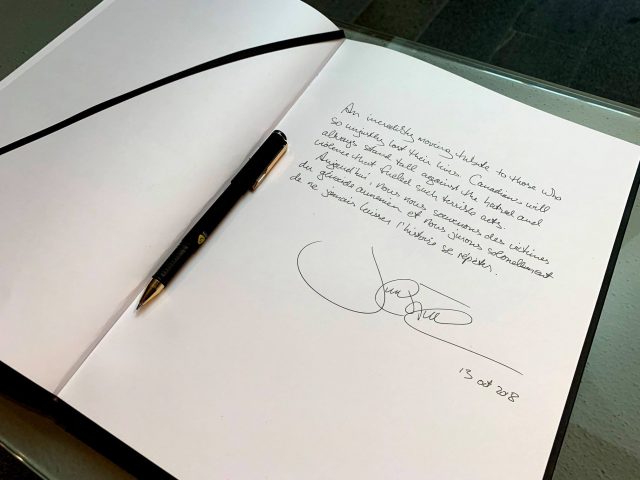 An incredibly moving tribute to those who
so unjustly lost their lives. Canadians will
always stand tall against the hatred and
violence that fueled such terrible acts.
Aujourd'hui, nous nous souvenons des victimes
du génocide arménien et nous jurons solonellement
de ne jamais laisser l'histoire se répéter.
13 oct 2018